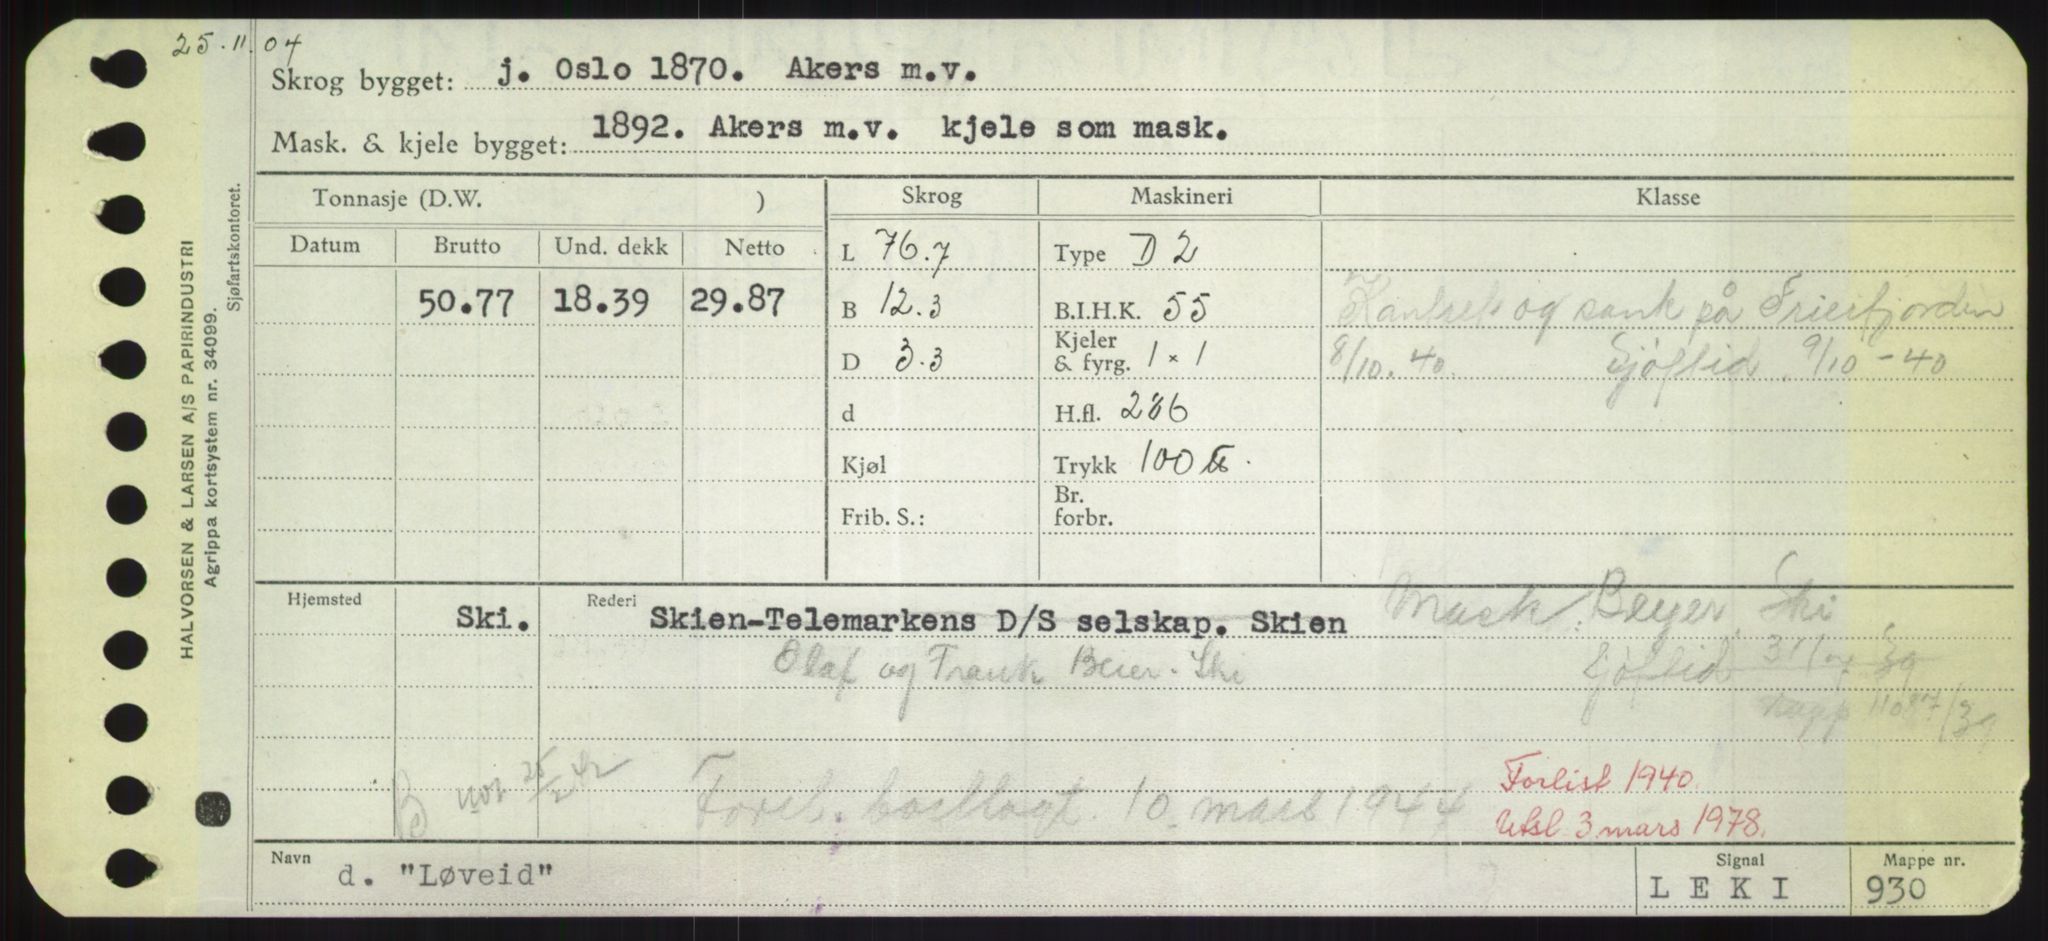 25.11.04
Skrog bygget: j. Oslo 1870. Akers m.v.
Mask. & kjele bygget: 1892. Akers m.v. kjele som mask.
Tonnasje (D.W. ) Skrog Maskineri Klasse
Datum Brutto Und. dekk Netto L 76.7 Type D 2
50.77 18.39 29.87 B 12.3 B.I.H.K. 55 og sank på Frierfjorden
D 3.3 Kjeler & fyrg. 1 × 1 8/10. 40. Sjøftid. 9/10 - 40
d H.fl. 286
Kjøl Trykk 100 ℔.
Frib. S.: Br. forbr.
Hjemsted Ski. Rederi Skien-Telemarkens D/S selskap. Skien Mask. Beyer. Ski
Olaf og Frank Beier. Ski Sjøftid 39
1107/39
B not 25/2 42 Forel. 10. mars 1944 Forlist 1940.
Utsl. 3 mars 1978.
Navn d. "Løveid" Signal L E K I Mappe nr. 930
HALVORSEN & LARSEN A/S PAPIRINDUSTRI
Agrippa kortsystem nr. 34099.
Sjøfartskontoret.